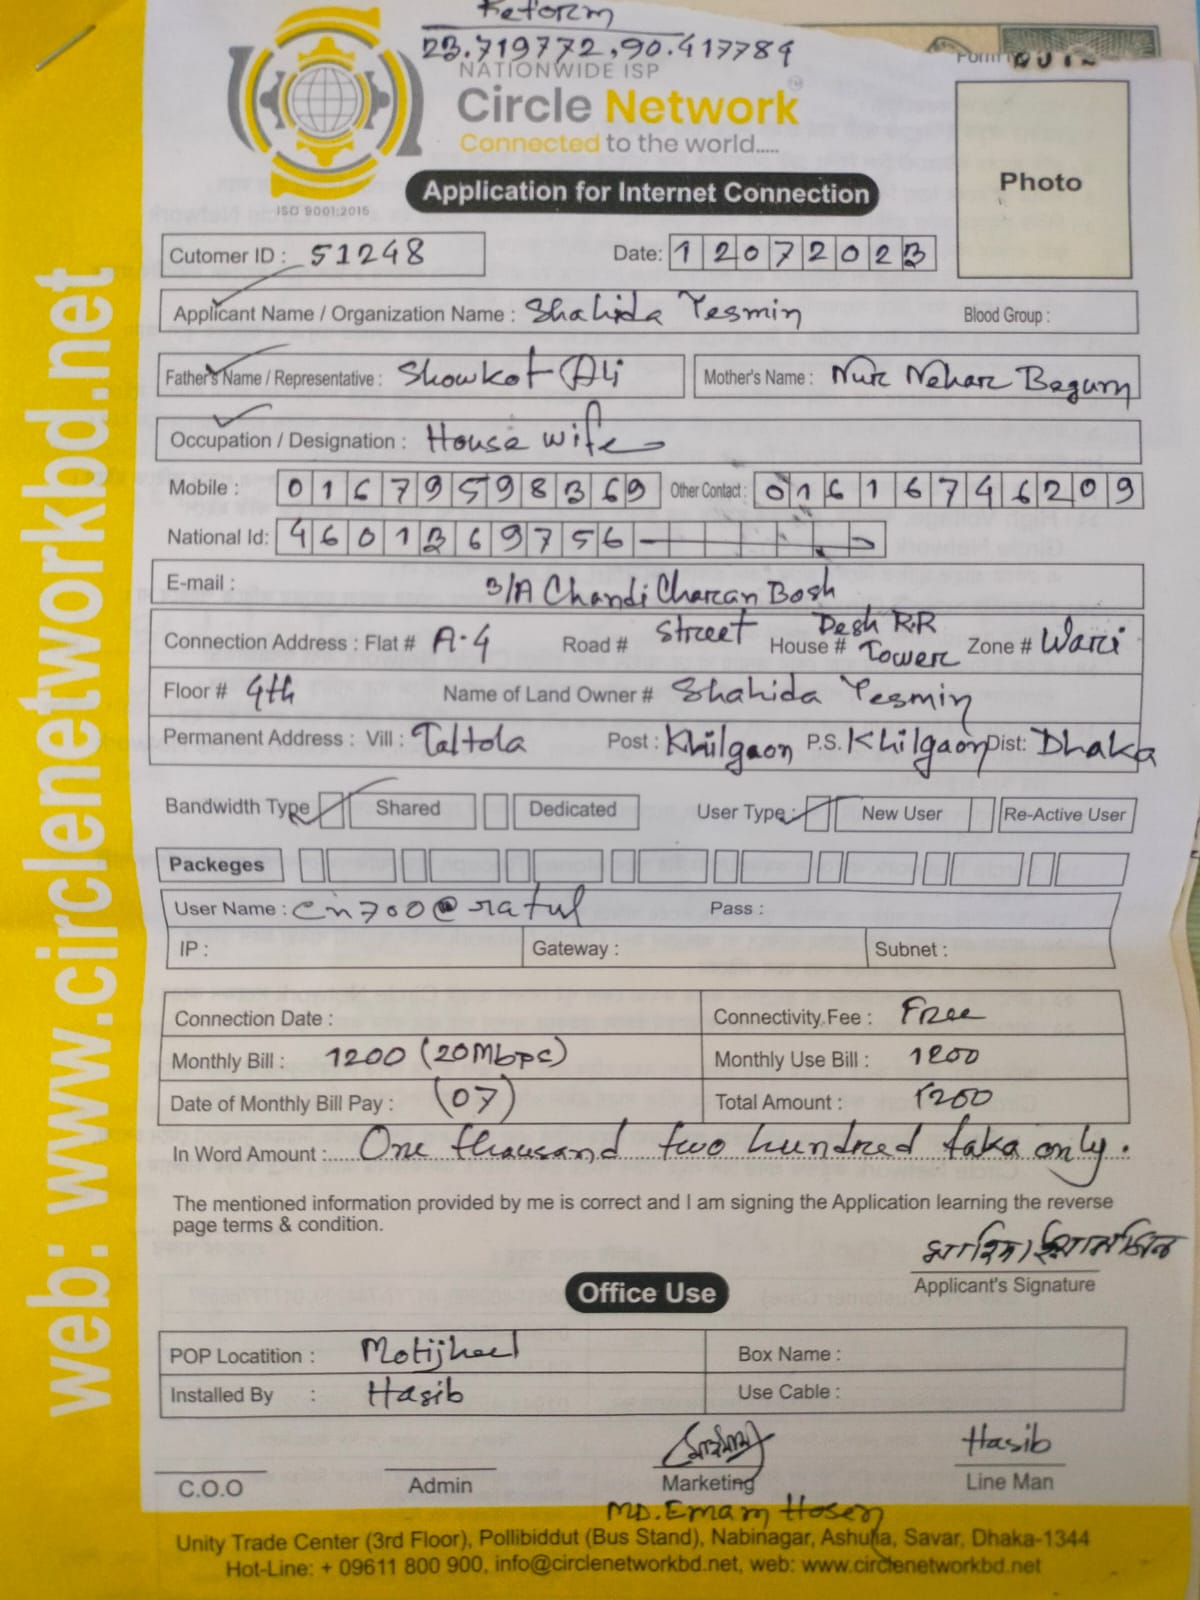 Reform
23.719772, 90.417789
NATIONWIDE ISP
Circle Network
Connected to the world.....
ISO 9001:2015
Application for Internet Connection
Photo
Cutomer ID : 51248
Date: 12072023
Applicant Name / Organization Name : Shahida Yesmin Blood Group :
Father's Name / Representative : Showkot Ali Mother's Name : Nur Nehar Begum
Occupation / Designation : House wife
Mobile : 01679598369 Other Contact : 01616746209
National Id: 4601369756
E-mail :
3/A Chandi Charan Bosh
Connection Address : Flat # A-4 Road # Street House # Desh R.R Tower Zone # Wari
Floor # 4th Name of Land Owner # Shahida Yesmin
Permanent Address : Vill : Taltola Post : Khilgaon P.S. Khilgaon Dist: Dhaka
Bandwidth Type Shared Dedicated User Type : New User Re-Active User
Packeges
User Name : cn700@ratul Pass :
IP : Gateway : Subnet :
Connection Date : Connectivity Fee : Free
Monthly Bill : 1200 (20Mbps) Monthly Use Bill : 1200
Date of Monthly Bill Pay : (07) Total Amount : 1200
In Word Amount : One thousand two hundred taka only.
The mentioned information provided by me is correct and I am signing the Application learning the reverse
page terms & condition.
Applicant's Signature
Office Use
POP Locatition : Motijheel Box Name :
Installed By : Hasib Use Cable :
Hasib
C.O.O Admin Marketing Line Man
MD. Emam Hosen
Unity Trade Center (3rd Floor), Pollibiddut (Bus Stand), Nabinagar, Ashulia, Savar, Dhaka-1344
Hot-Line: + 09611 800 900, info@circlenetworkbd.net, web: www.circlenetworkbd.net
web: www.circlenetworkbd.net